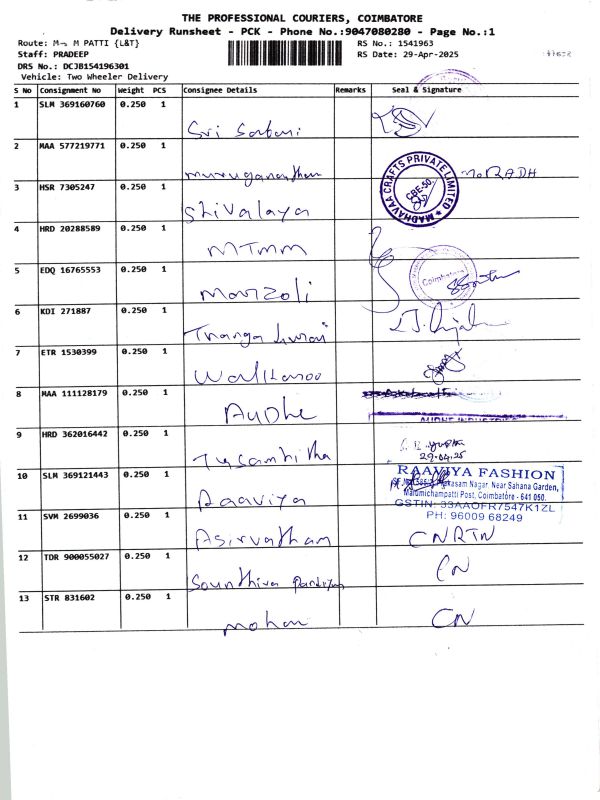 THE PROFESSIONAL COURIERS, COIMBATORE
Delivery Runsheet - PCK - Phone No.:9047080280 - Page No.:1
Route: M M PATTI {L&T} RS No.: 1541963
Staff: PRADEEP RS Date: 29-Apr-2025
DRS No.: DCJB154196301
Vehicle: Two Wheeler Delivery
S No Consignment No Weight PCS Consignee Details Remarks Seal & Signature
1 SLM 369160760 0.250 1
Sri
2 MAA 577219771 0.250 1
muruganantham
MADHAVAA CRAFTS PRIVATE LIMITED
CBE-50.
3 HSR 7305247 0.250 1
Shivalaya
4 HRD 20288589 0.250 1
MTMM
5 EDQ 16765553 0.250 1
Coimbatore
6 KDI 271887 0.250 1
7 ETR 1530399 0.250 1
8 MAA 111128179 0.250 1
9 HRD 362016442 0.250 1
29.04.25
10 SLM 369121443 0.250 1
Raaviya
RAAVIYA FASHION
Nagar, Near Sahana Garden,
Malumichampatti Post, Coimbatore - 641 050.
GSTIN: 33AAOFR7547K1ZL
PH: 96009 68249
11 SVM 2699036 0.250 1
Asirvatham
12 TDR 900055027 0.250 1
CN
13 STR 831602 0.250 1
mohan CN